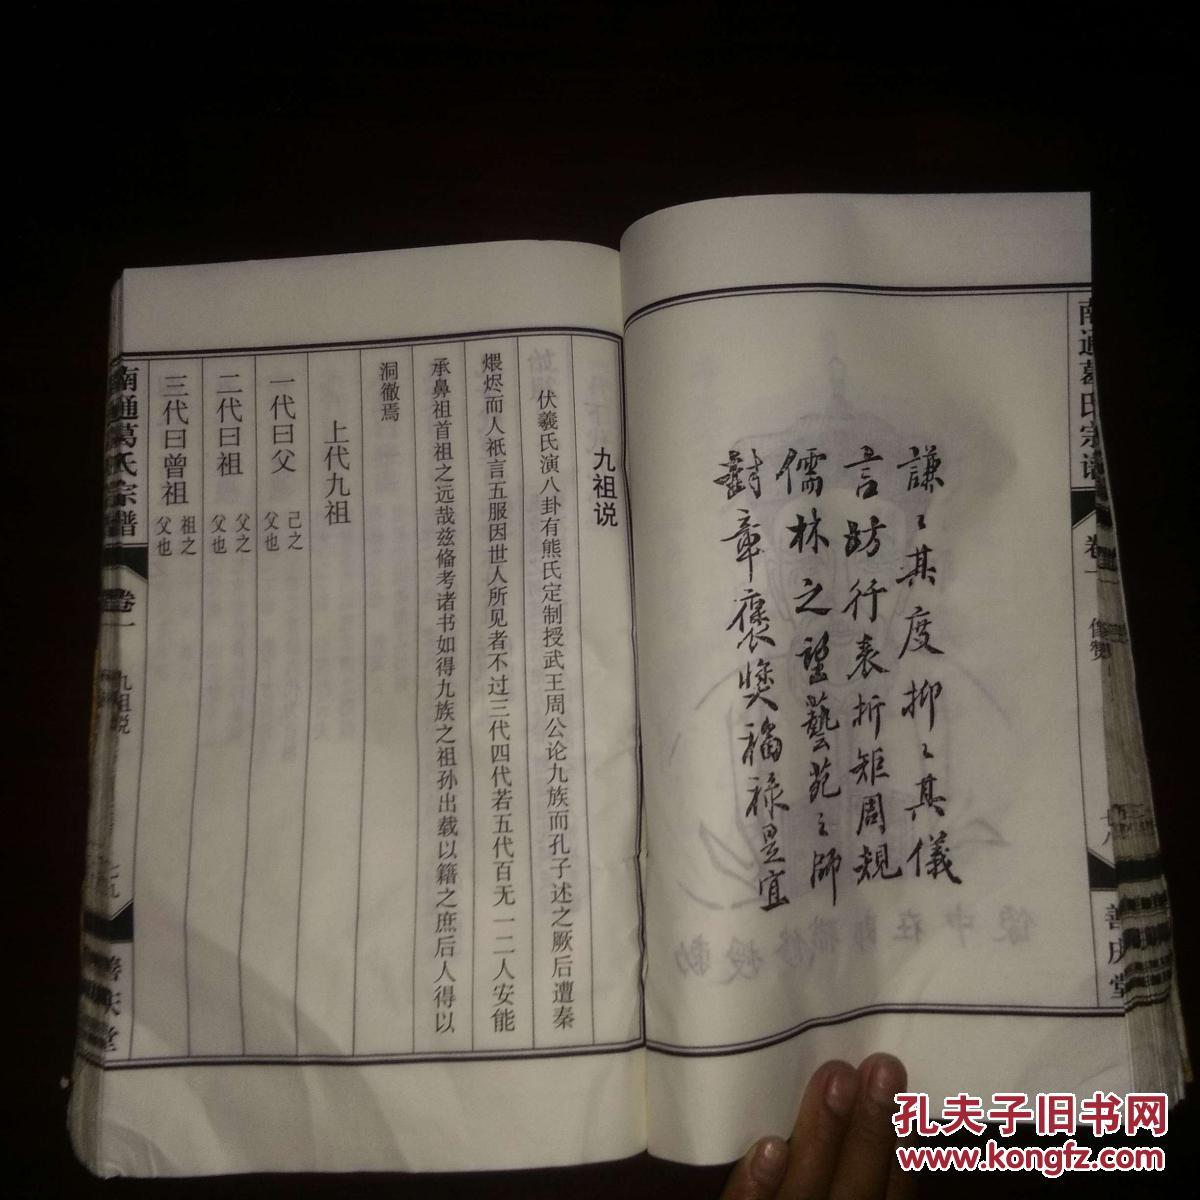 南通葛氏宗谱
卷一
像赞
善庆堂
謙〻其度抑〻其儀
言訪行表折矩周規
儒林之望藝苑之師
對章褒奬福祿是宜
九祖说
伏羲氏演八卦有熊氏定制授武王周公论九族而孔子述之厥后遭秦
煨烬而人祇言五服因世人所见者不过三代四代若五代百无一二人安能
承鼻祖首祖之远哉兹偹考诸书如得九族之祖孙出载以籍之庶后人得以
洞徹焉
上代九祖
一代曰父 己之父也
二代曰祖 父之父也
三代曰曾祖 祖之父也
南通葛氏宗谱
卷一
九祖说
善庆堂
孔夫子旧书网
www.kongfz.com